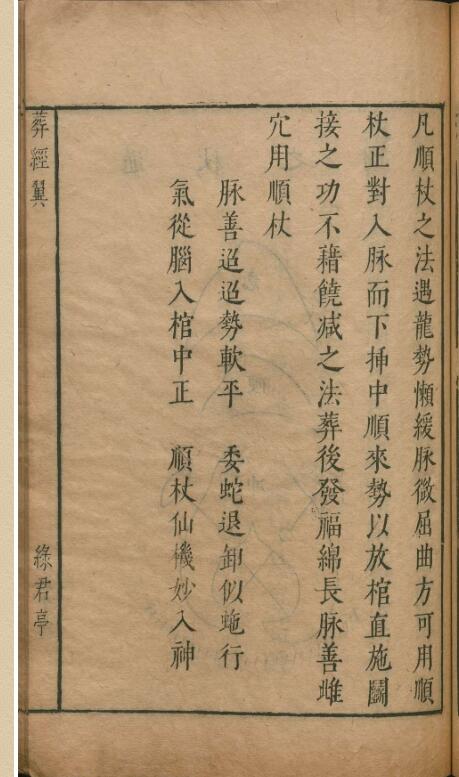 凡順杖之法遇龍勢懶緩脉微屈曲方可用順
杖正對入脉而下揷中順來勢以放棺直施鬬
接之功不藉饒减之法葬後發福綿長脉善雌
穴用順杖
脉善迢迢勢軟平　委蛇退卸似虵行
氣從腦入棺中正　順杖仙機妙入神
葬經翼
綠君亭